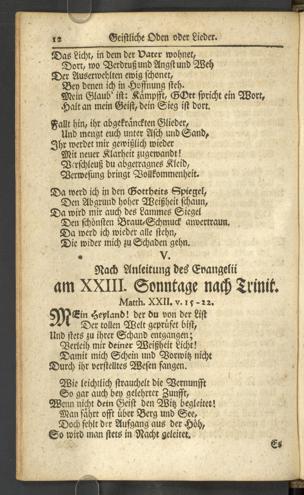 12 Geistliche Oden oder Lieder.
Das Licht, in dem der Vater wohnet,
Dort, wo Verdruß und Angst und Weh
Der Auserwehlten ewig schonet,
Bey denen ich in Hoffnung steh.
Mein Glaub' ist: Kämpfft, GOtt spricht ein Wort,
Halt an mein Geist, dein Sieg ist dort.
Fallt hin, ihr abgekränckten Glieder,
Und mengt euch unter Asch und Sand,
Ihr werdet mir gewißlich wieder
Mit neuer Klarheit zugewandt!
Verschleuß du abgetragnes Kleid,
Verwesung bringt Vollkommenheit.
Da werd ich in den Gottheits Spiegel,
Den Abgrund hoher Weißheit schaun,
Da wird mir auch des Lammes Siegel
Den schönsten Braut-Schmuck anvertraun.
Da werd ich wieder alle stehn,
Die wider mich zu Schaden gehn.
V.
Nach Anleitung des Evangelii
am XXIII. Sonntage nach Trinit.
Matth. XXII. v. 15-22.
MEin Heyland! der du von der List
Der tollen Welt geprüfet bist,
Und stets zu ihrer Schand entgangen;
Verleih mir deiner Weißheit Licht!
Damit mich Schein und Vorwitz nicht
Durch ihr verstelltes Wesen fangen.
Wie leichtlich strauchelt die Vernunfft
So gar auch bey gelehrter Zunfft,
Wenn nicht dein Geist den Witz begleitet!
Man fährt offt über Berg und See,
Doch fehlt der Aufgang aus der Höh,
So wird man stets in Nacht geleitet.
Es